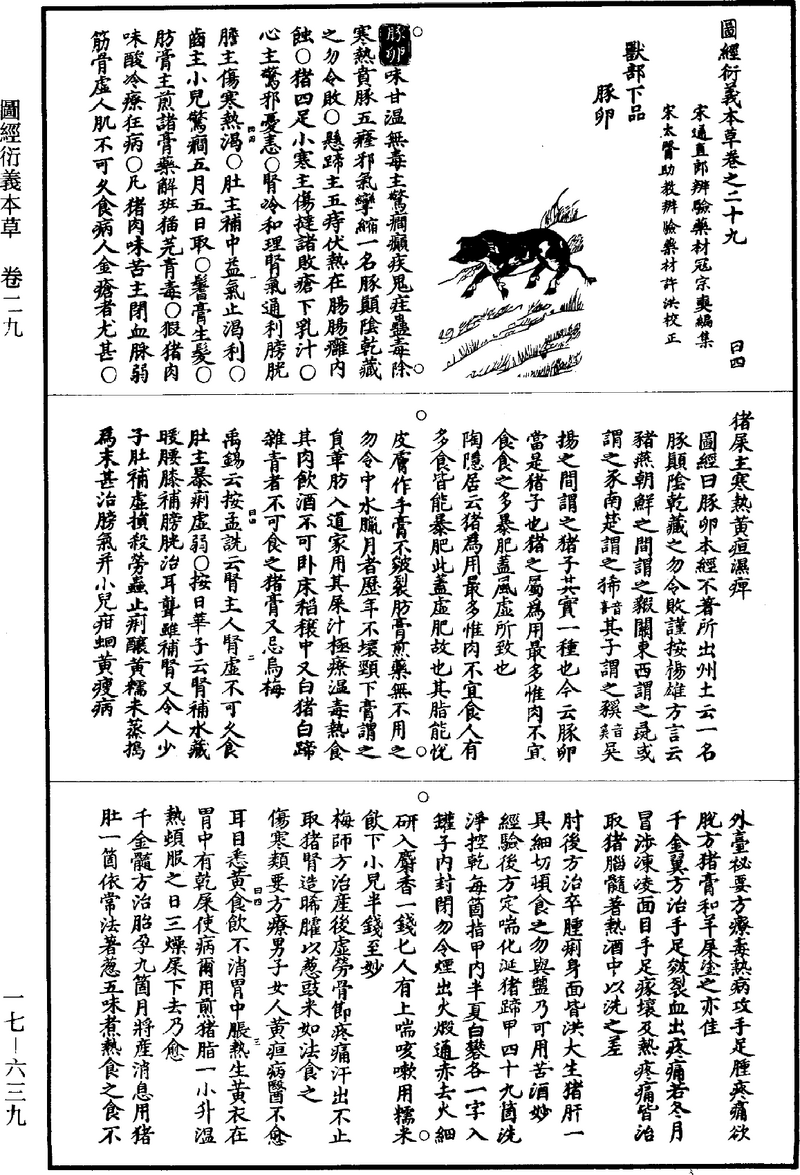 圖經衍義本草卷之二十九
宋通直郎辨驗藥材寇宗奭編集
宋太醫助教辨驗藥材許洪校正
曰四
獸部下品
豚卵
豚卵味甘溫無毒主驚癇癲疾鬼疰蠱毒除
寒熱賁豚五癃邪氣攣縮一名豚顛陰乾藏
之勿令敗○懸蹄主五痔伏熱在腸腸癰內
蝕○猪四足小寒主傷撻諸敗瘡下乳汁○
心主驚邪憂恚○腎冷和理腎氣通利膀胱
膽主傷寒熱渴○肚主補中益氣止渴利○
齒主小兒驚癇五月五日取○鬐膏生髮○
肪膏主煎諸膏藥解班猫芫青毒○豭猪肉
味酸冷療狂病○凡猪肉味苦主閉血脉弱
筋骨虛人肌不可久食病人金瘡者尤甚○
猪屎主寒熱黃疸濕痺
圖經曰豚卵本經不著所出州土云一名
豚顛陰乾藏之勿令敗謹按楊雄方言云
豬燕朝鮮之間謂之豭關東西謂之彘或
謂之豕南楚謂之狶音其子謂之豯音吳
揚之間謂之猪子其實一種也今云豚卵
當是猪子也猪之屬為用最多惟肉不宜
食食之多暴肥蓋風虛所致也
陶隱居云猪為用最多惟肉不宜食人有
多食皆能暴肥此蓋虛肥故也其脂能悅
皮膚作手膏不皸裂肪膏煎藥無不用之
勿令中水臘月者歷年不壞頸下膏謂之
負革肪入道家用其屎汁極療溫毒熱食
其肉飲酒不可卧床稻穰中又白猪白蹄
雜青者不可食之猪膏又忌烏梅
禹錫云按孟詵云腎主人腎虛不可久食
肚主暴痢虛弱○按日華子云腎補水藏
暖腰膝補膀胱治耳聾雖補腎又令人少
子肚補虛損殺勞蟲止痢釀黃糯米蒸搗
為末甚治膀氣并小兒疳蛔黃瘦病
外臺祕要方療毒熱病攻手足腫疼痛欲
脫方猪膏和羊屎塗之亦佳
千金翼方治手足皴裂血出疼痛若冬月
冒涉凍凌面目手足瘃壞及熱疼痛皆治
取猪腦髓著熱酒中以洗之差
肘後方治卒腫痢身面皆洪大生猪肝一
具細切頓食之勿與鹽乃可用苦酒妙
經驗後方定喘化涎猪蹄甲四十九箇洗
淨控乾每箇指甲內半夏白礬各一字入
罐子內封閉勿令煙出火煅通赤去火細
研入麝香一錢匕人有上喘咳嗽用糯米
飲下小兒半錢至妙
梅師方治產後虛勞骨節疼痛汗出不止
取猪腎造晞臛以葱豉米如法食之
傷寒類要方療男子女人黃疸病醫不愈
耳目悉黃食飲不消胃中脹熱生黃衣在
胃中有乾屎使病爾用煎猪脂一小升溫
熱頓服之日三燥屎下去乃愈
千金髓方治胎孕九箇月將產消息用猪
肚一箇依常法著葱五味煮熱食之食不
圖經衍義本草　卷二九
一七—六三九